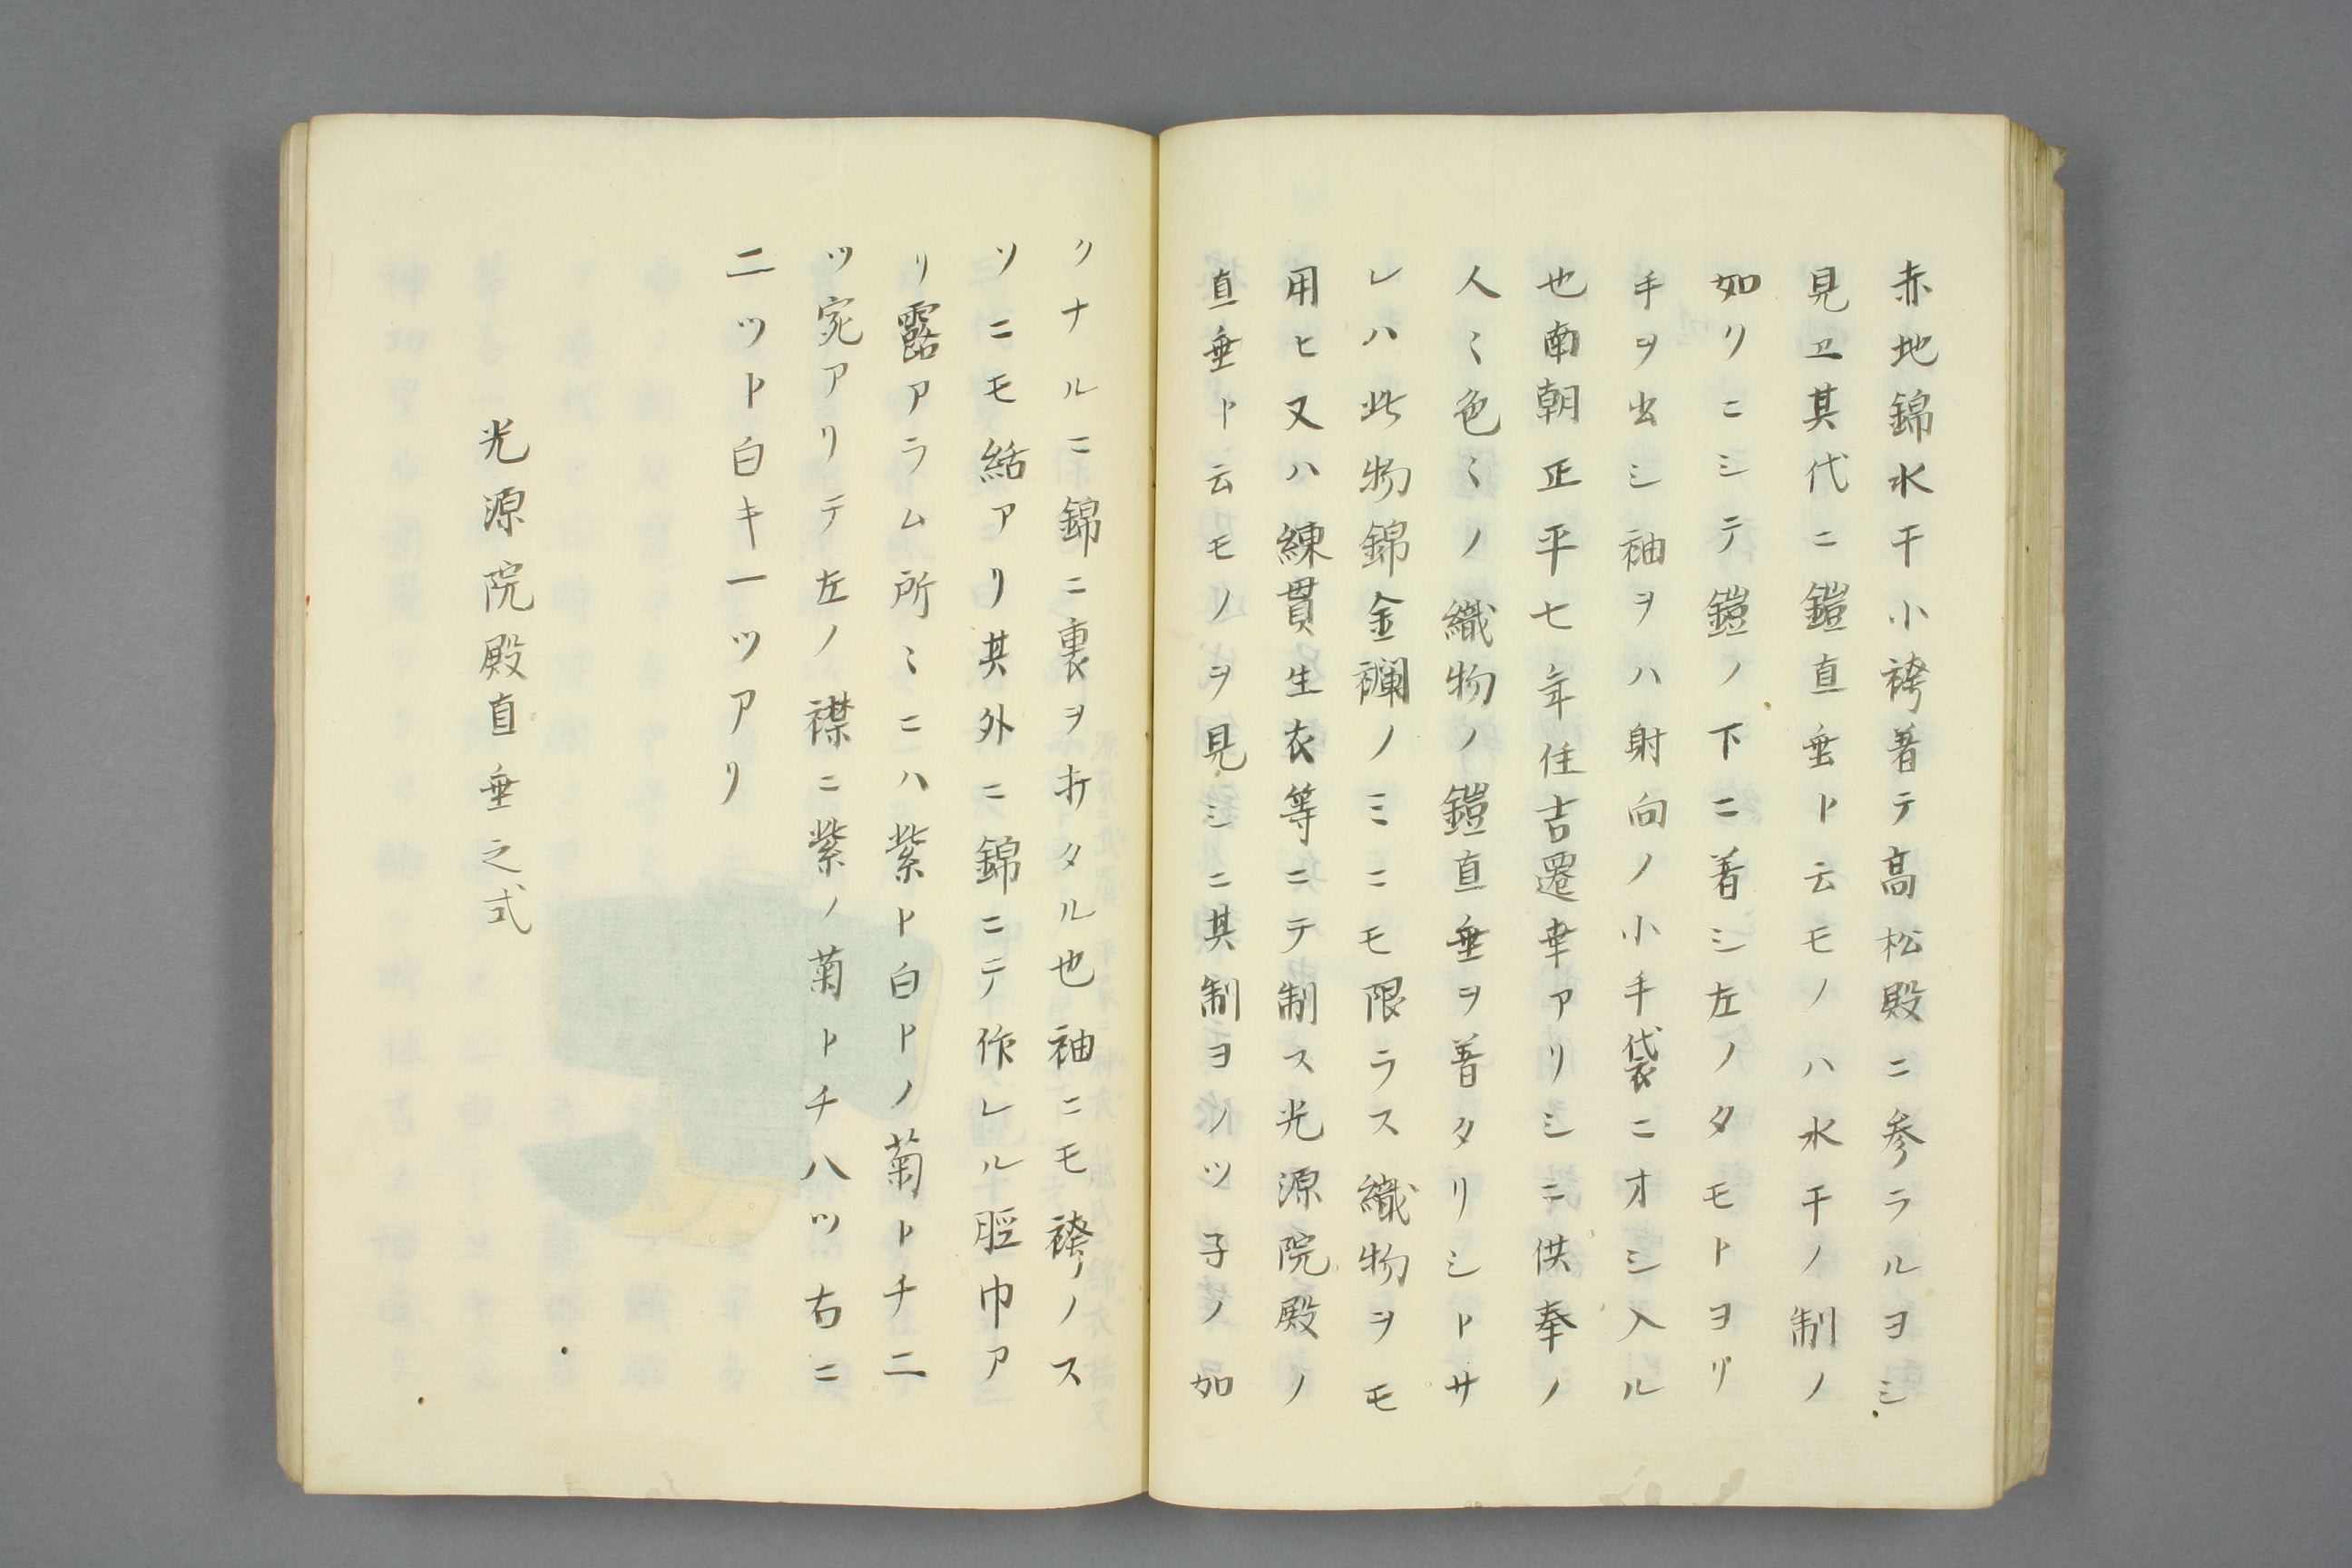 赤地錦水干小袴著テ高松殿ニ参ラルヨシ
見ヱ其代ニ鎧直垂ト云モノハ水干ノ制ノ
如クニシテ鎧ノ下ニ着シ左ノタモトヨリ
手ヲ出シ袖ヲハ射向ノ小手袋ニオシ入ル
也南朝正平七年住吉遷幸アリシニ供奉ノ
人〻色〻ノ織物ノ鎧直垂ヲ著タリシトサ
レハ此物錦金襴ノミニモ限ラス織物ヲモ
用ヒ又ハ練貫生衣等ニテ制ス光源院殿ノ
直垂ト云モノヲ見シニ其制ヨノツ子ノ如
クナルニ錦ニ裏ヲ打タル也袖ニモ袴ノス
ソニモ結アリ其外ニ錦ニテ作レル脛巾ア
リ露アラム所〻ニハ紫ト白トノ菊トチ二
ツ宛アリテ左ノ襟ニ紫ノ菊トチ八ツ右ニ
二ツト白キ一ツアリ
光源院殿直垂之式